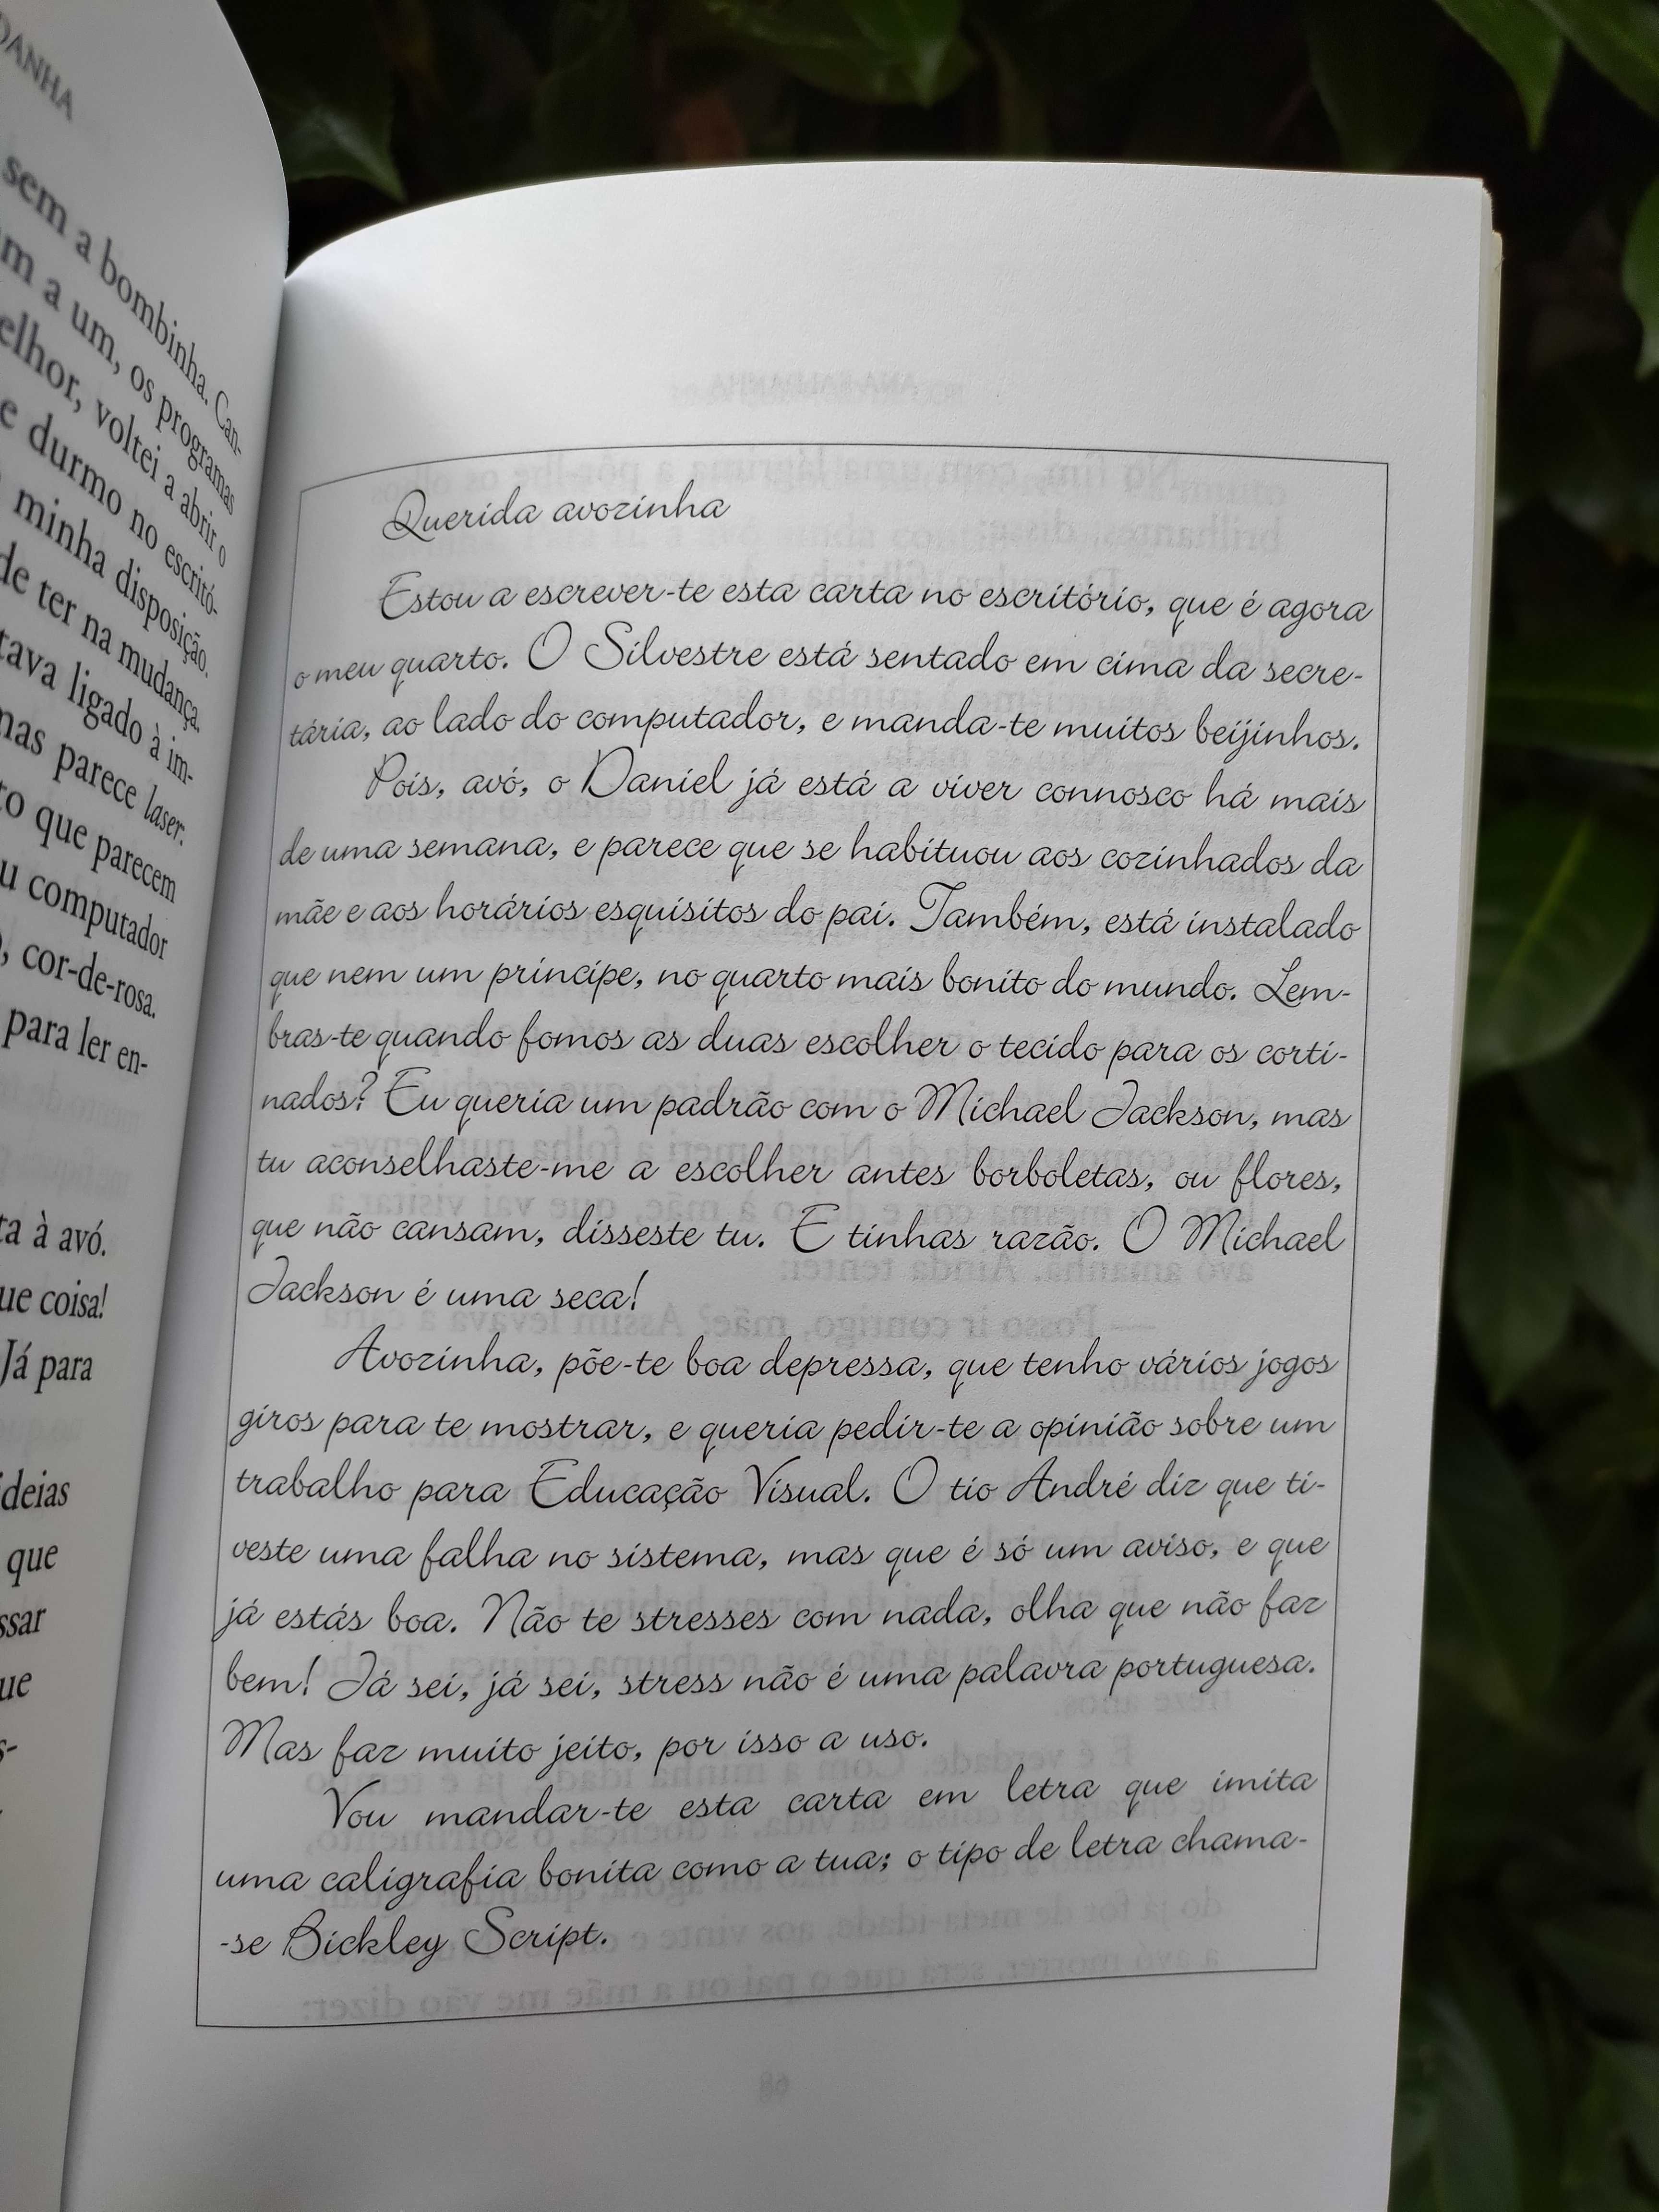 DANHA
sem a bombinha. Can-
m a um, os programas
elhor, voltei a abrir o
e durmo no escritó-
minha disposição.
de ter na mudança.
tava ligado à im-
mas parece laser.
to que parecem
u computador
, cor-de-rosa.
para ler en-
ta à avó.
ue coisa!
Já para
deias
que
ssar
ue
s-
Querida avozinha
Estou a escrever-te esta carta no escritório, que é agora
o meu quarto. O Silvestre está sentado em cima da secre-
tária, ao lado do computador, e manda-te muitos beijinhos.
Pois, avó, o Daniel já está a viver connosco há mais
de uma semana, e parece que se habituou aos cozinhados da
mãe e aos horários esquisitos do pai. Também, está instalado
que nem um príncipe, no quarto mais bonito do mundo. Lem-
bras-te quando fomos as duas escolher o tecido para os corti-
nados? Eu queria um padrão com o Michael Jackson, mas
tu aconselhaste-me a escolher antes borboletas, ou flores,
que não cansam, disseste tu. E tinhas razão. O Michael
Jackson é uma seca!
Avozinha, põe-te boa depressa, que tenho vários jogos
giros para te mostrar, e queria pedir-te a opinião sobre um
trabalho para Educação Visual. O tio André diz que ti-
veste uma falha no sistema, mas que é só um aviso, e que
já estás boa. Não te stresses com nada, olha que não faz
bem! Já sei, já sei, stress não é uma palavra portuguesa.
Mas faz muito jeito, por isso a uso.
Vou mandar-te esta carta em letra que imita
uma caligrafia bonita como a tua; o tipo de letra chama-
-se Bickley Script.